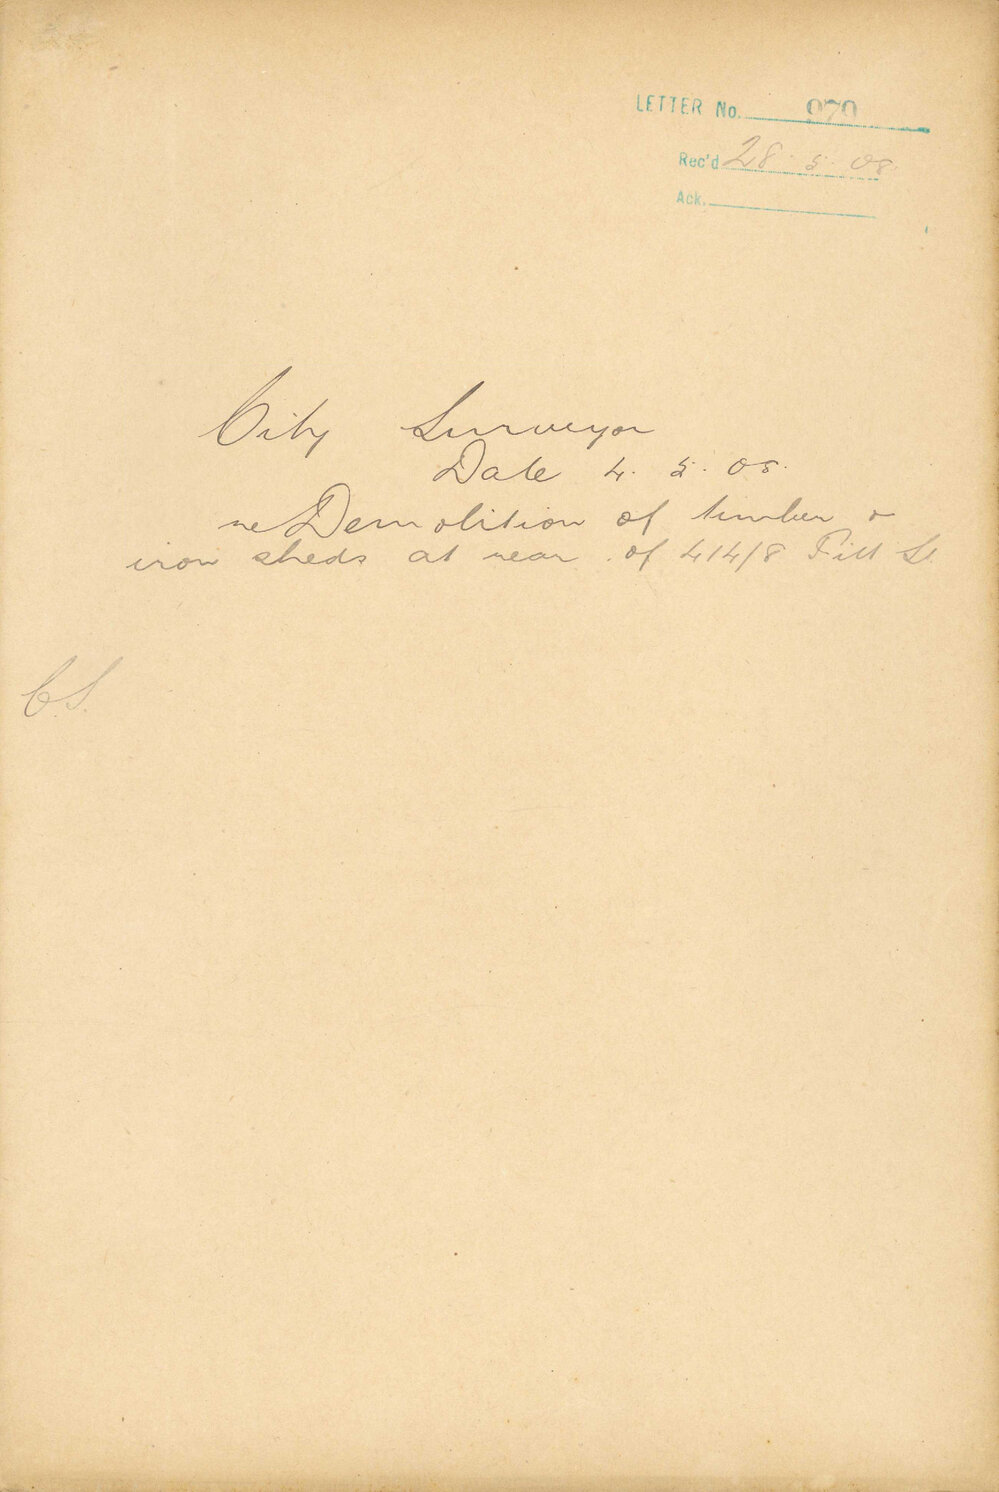 LETTER No. 979
Rec'd 28. 5. 08.
Ack.
City Surveyor
Date 4. 5. 08.
re Demolition of timber &
iron sheds at rear of 414/8 Pitt St.
C.S.